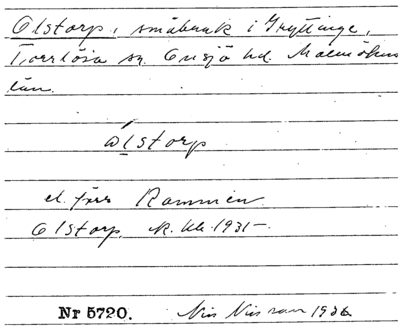 Olstorp, småbruk i Gryttinge,
Torrlösa sn. Onsjö hd. Malmöhus
län.
ólstorp
el. förr Rammen
Olstorp. K. kb 1931-.
Nr 5720. Nils Nilsson 1936